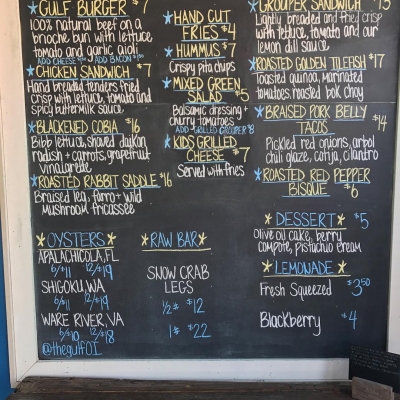 GULF BURGER $7
100% natural beef on a
brioche bun with lettuce
tomato and garlic aioli
CHICKEN SANDWICH $7
Hand breaded tenders fried
crisp with lettuce, tomato and
spicy buttermilk sauce
BLACKENED COBIA $16
Bibb lettuce, shaved daikon
radish + carrots, grapefruit
vinaigrette
ROASTED RABBIT SADDLE $16
Braised leg, farro + wild
mushroom fricassee
HAND CUT
FRIES $4
HUMMUS $7
Crispy pita chips
MIXED GREEN
SALAD $5
Balsamic dressing +
cherry tomatoes
ADD GRILLED GROUPER $8
KIDS GRILLED
CHEESE $7
Served with fries
GROUPER SANDWICH
Lightly breaded and fried crisp
with lettuce, tomato and our
lemon dill sauce
ROASTED GOLDEN TILEFISH $17
Toasted quinoa, marinated
tomatoes, roasted bok choy
BRAISED PORK BELLY
TACOS $14
Pickled red onions, arbol
chili glaze, cotija, cilantro
ROASTED RED PEPPER
BISQUE $6
DESSERT $5
Olive oil cake, berry
compote, pistachio cream
LEMONADE
Fresh Squeezed $3.50
Blackberry $4
OYSTERS
APALACHICOLA, FL
6/$11 12/$19
SHIGOKU, WA
6/$11 12/$19
WARE RIVER, VA
6/$10 12/$18
@thegulfOI
RAW BAR
SNOW CRAB
LEGS
1/2# $12
1# $22